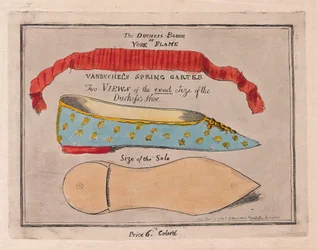 The DUCHESS BLUSH
or
YORK FLAME
VANBUCHEL'S SPRING GARTES
Two VIEWS of the exact Size of the
Duchess's Shoe.
Size of the Sole
Price 6.d Colour'd